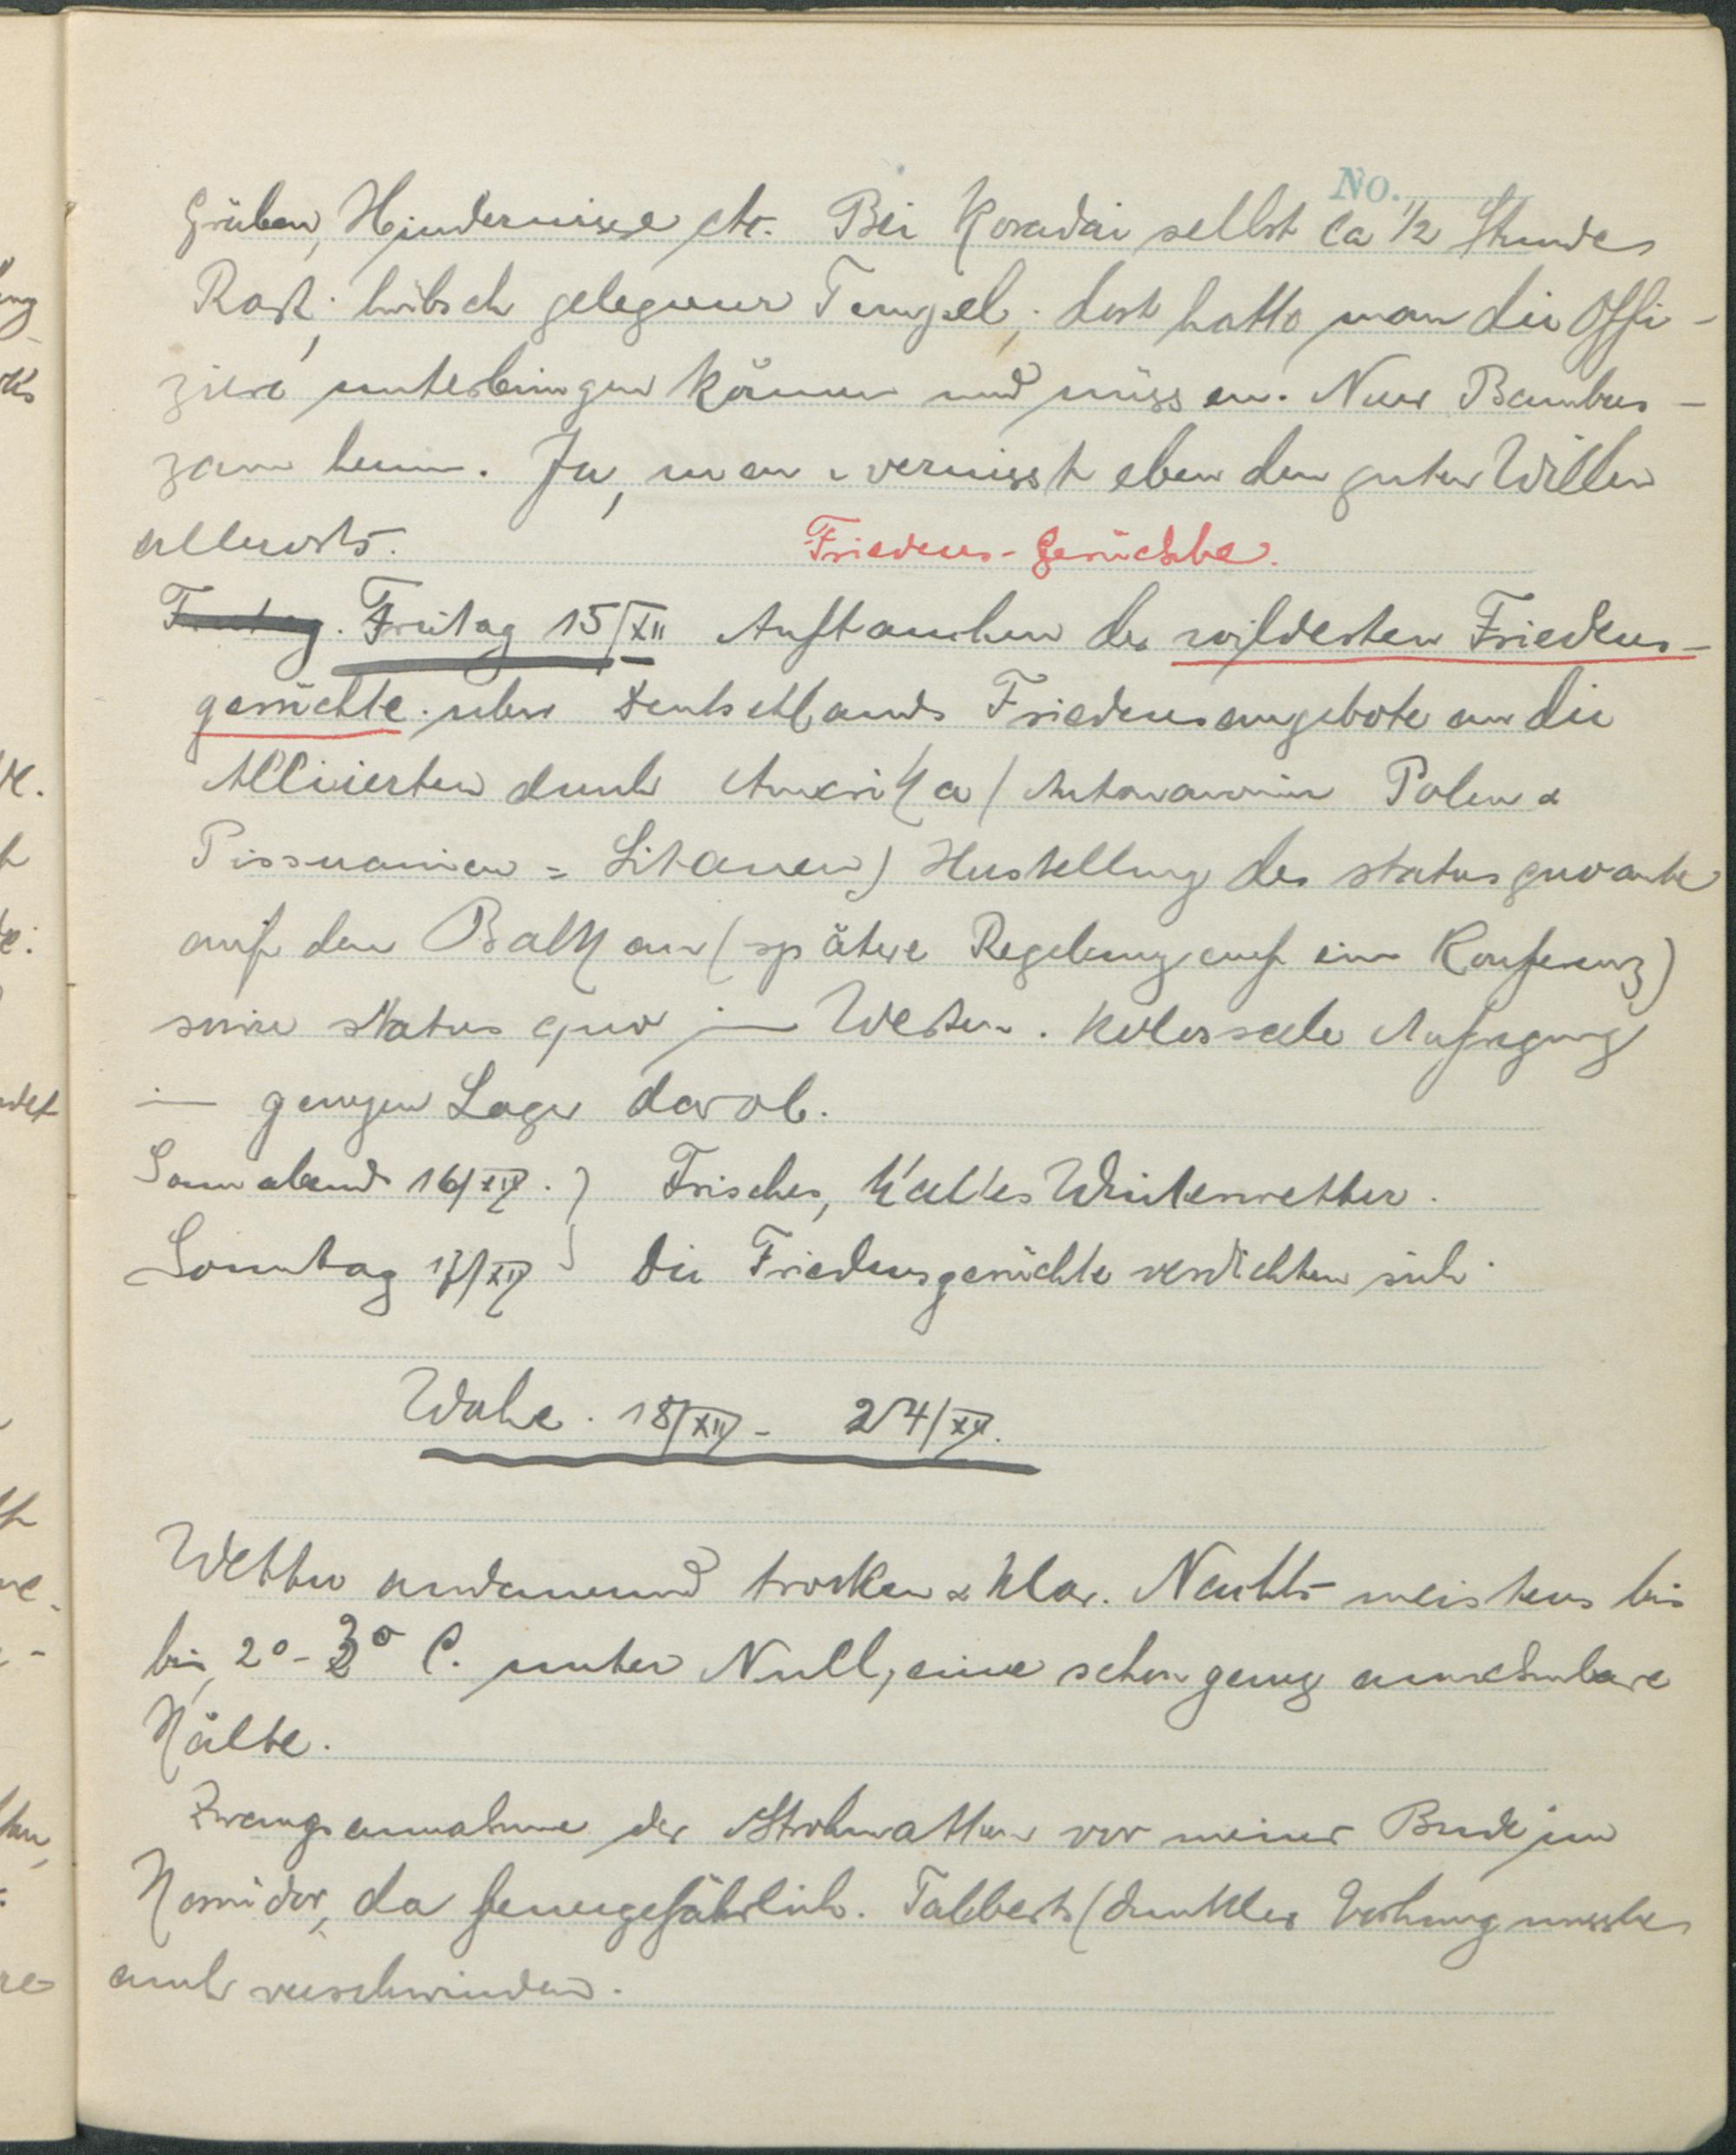 No.
Gräben, Hindernisse etc. Bei Koradai selbst ca 1/2 Stunde
Rast; hübsch gelegener Tempel; dort hätte man die Offi-
ziere unterbringen können und müssen. Nur Bambus-
zaun herum. Ja, man vermisst eben den guten Willen
allerorts.
Friedens-Gerüchte.
Freitag. Freitag 15/XII Auftauchen der wildesten Friedens-
gerüchte über Deutschlands Friedensangebote an die
Alliierten durch Amerika (Autonomie Polen &
= Litauen) Herstellung des status quo ante
auf dem Balkan (spätere Regelung auf einer Konferenz)
sowie status quo im Westen. Kolossale Aufregung
im ganzen Lager darob.
Sonnabend 16/XII. } Frisches, kaltes Winterwetter.
Sonntag 17/XII } Die Friedensgerüchte verdichten sich.
Woche. 18/XII - 24/XII.
Wetter andauernd trocken & klar. Nachts meistens bis
bis 2° - 3° C. unter Null, eine schon genug annehmbare
Kälte.
Zwangsannahme der Strohmatten vor meiner Bude im
Korridor, da feuergefährlich. Talberts (dunkler Vorhang musste
auch verschwinden.